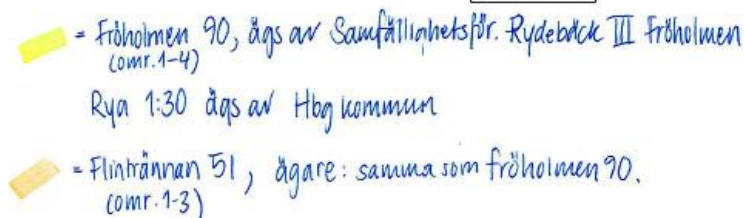 = Fröholmen 90, ägs av Samfällighetsför. Rydebäck III Fröholmen
(omr. 1-4)
Rya 1:30 ägs av Hbg kommun
= Flintrännan 51, ägare: samma som fröholmen 90.
(omr. 1-3)